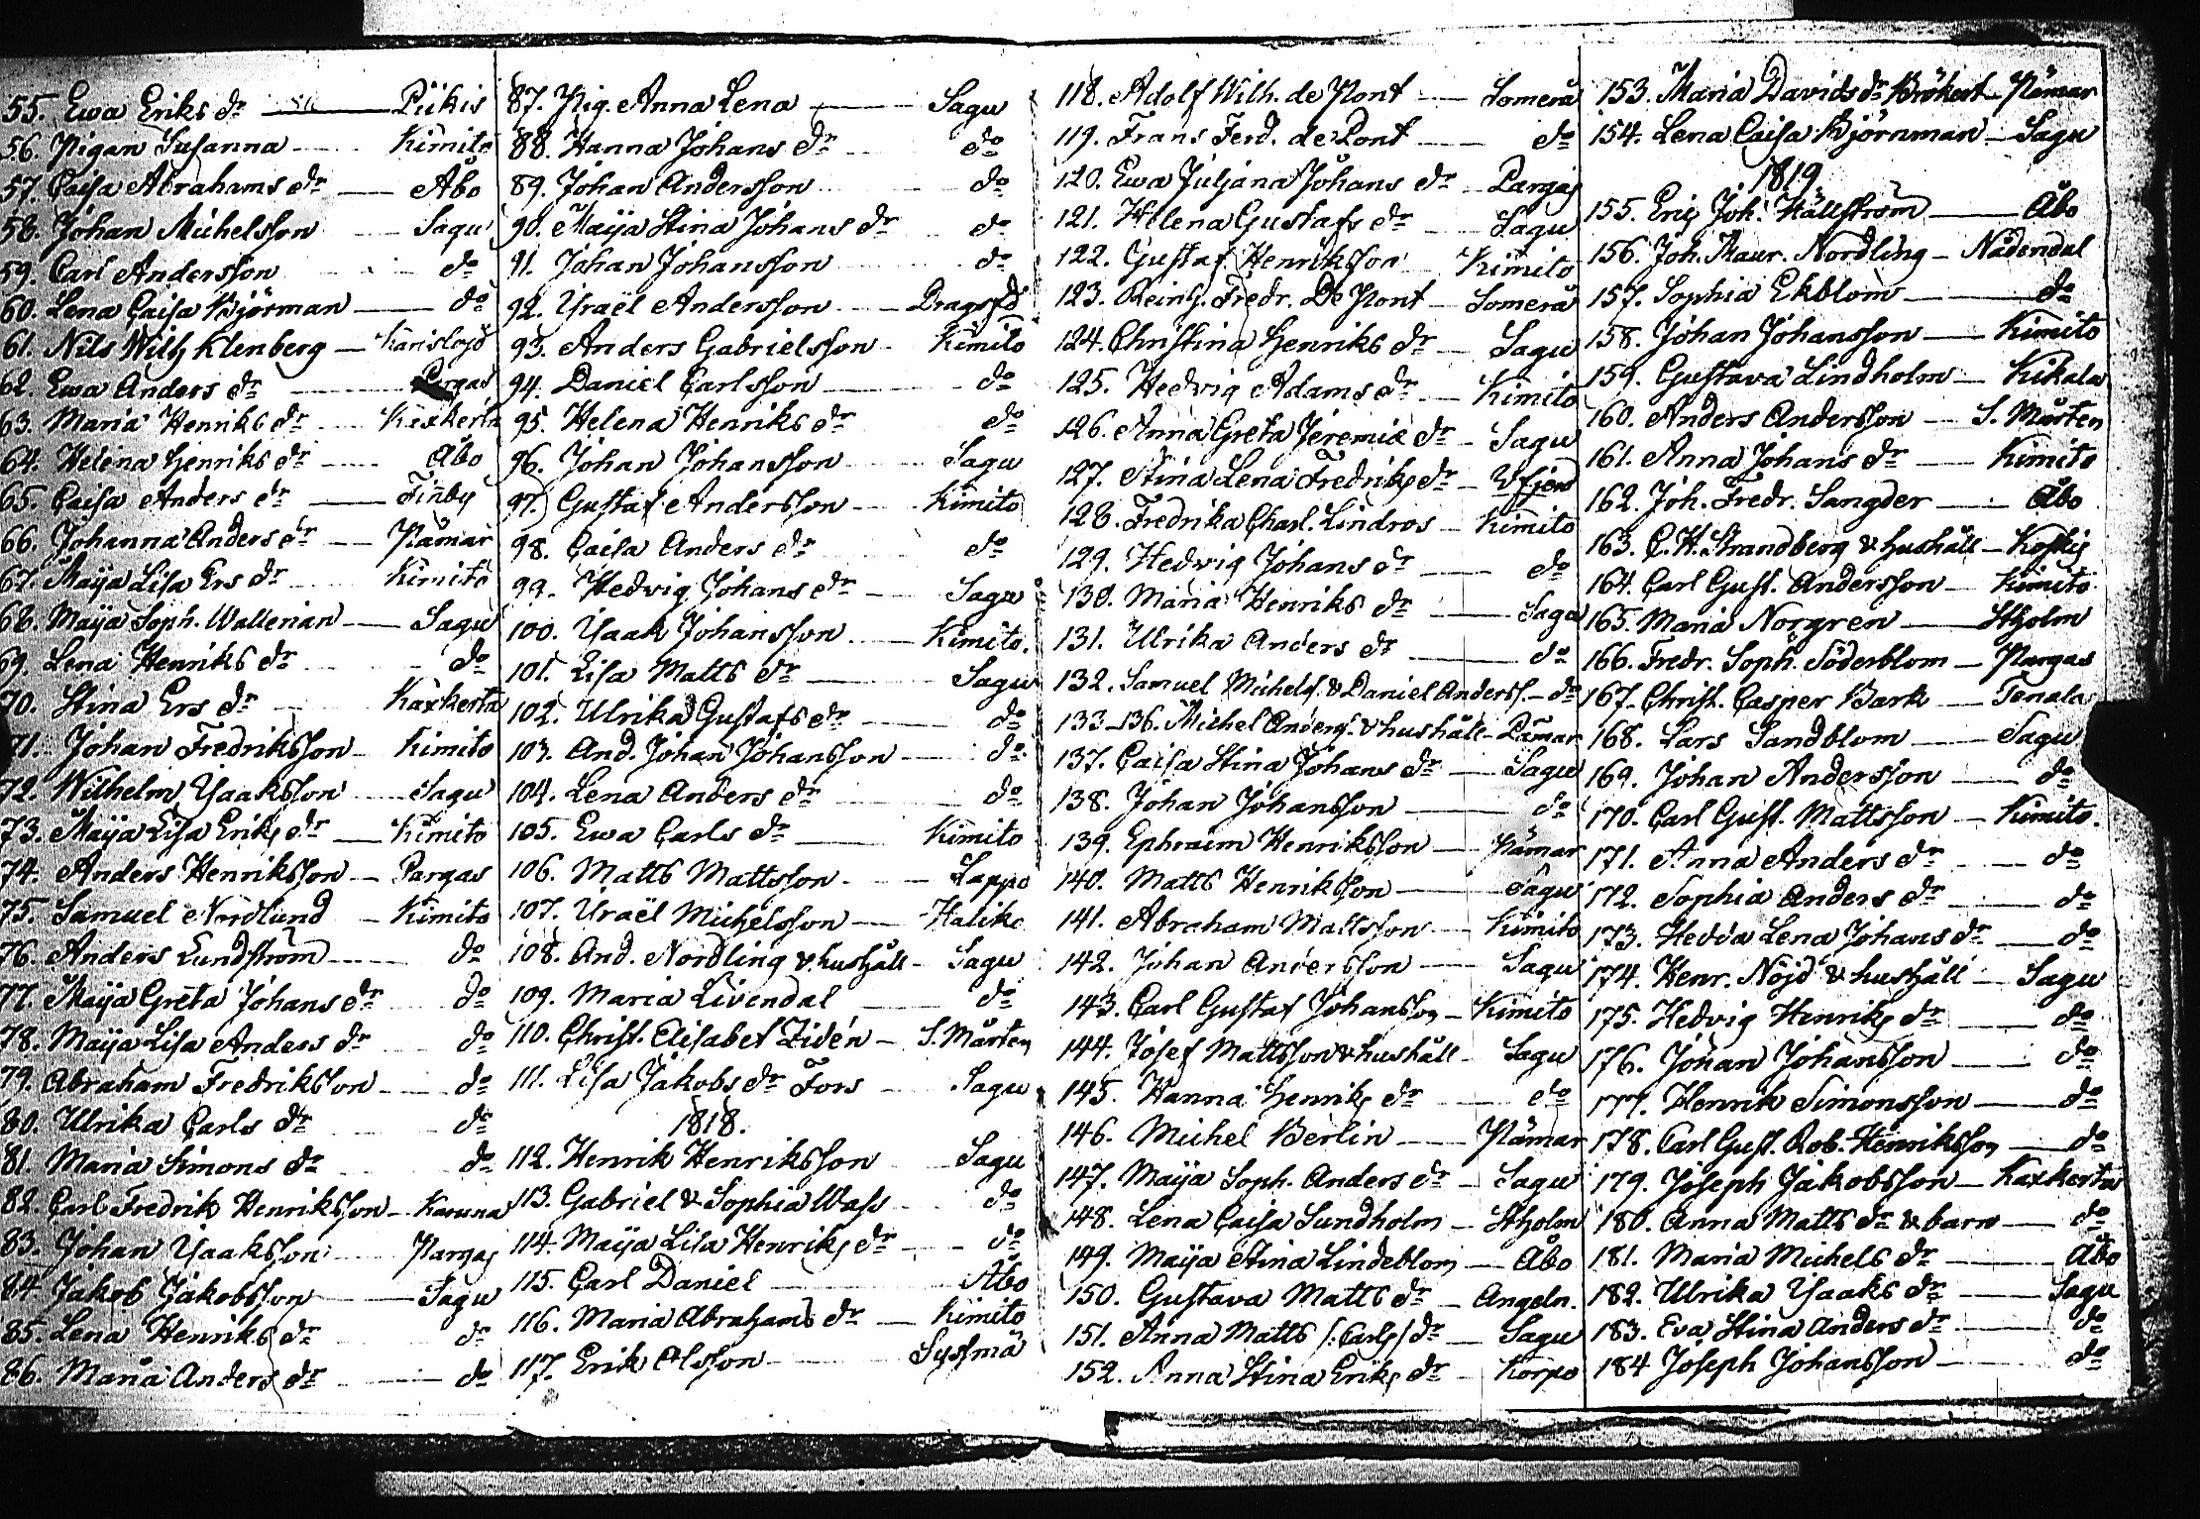 55. Ewa Eriks dr — Piikis
56. Pigan Susanna — Kimito
57. Caisa Abrahams dr — Åbo
58. Johan Michelsson — Sagu
59. Carl Andersson — do
60. Lena Caisa Björman — do
61. Nils Wilh Klenberg — Karislojo
62. Ewa Anders dr — Pargas
63. Maria Henriks dr — Kaxkerta
64. Helena Henriks dr — Åbo
65. Caisa Anders dr — Finby
66. Johanna Anders dr — Pämar
67. Maija Lisa Ers dr — Kimito
68. Maija Soph. Wallenian — Sagu
69. Lena Henriks dr — do
70. Stina Ers dr — Kaxkerta
71. Johan Fredriksson — Kimito
72. Wilhelm Isaaksson — Sagu
73. Maija Lisa Eriks dr — Kimito
74. Anders Henriksson — Pargas
75. Samuel Nordlund — Kimito
76. Anders Lundström — do
77. Maija Greta Johans dr — do
78. Maija Lisa Anders dr — do
79. Abraham Fredriksson — do
80. Ulrika Carls dr — do
81. Maria Simons dr — do
82. Carl Fredrik Henriksson — Karuna
83. Johan Isaaksson — Pargas
84 Jakob Jakobsson — Sagu
85. Lena Henriks dr — do
86. Maria Anders dr — do
87. Pig. Anna Lena — Sagu
88. Hanna Johans dr — do
89. Johan Andersson — do
90. Maija Stina Johans dr — do
91. Johan Johansson — do
92. Israël Andersson — Dragsfd
93. Anders Gabrielsson — Kimito
94. Daniel Carlsson — do
95. Helena Henriks dr — do
96. Johan Johansson — Sagu
97. Gustaf Andersson — Kimito
98. Caisa Anders dr — do
99. Hedvig Johans dr — Sagu
100. Isaak Johansson — Kimito.
101. Lisa Matts dr — Sagu
102. Ulrika Gustafs dr — do
103. And. Johan Johansson — do
104. Lena Anders dr — do
105. Ewa Carls dr — Kimito
106. Matts Mattsson — Lappo
107. Israël Michelsson — Haliko
108. And. Nordling & hushåll — Sagu
109. Maria Livendal — do
110. Christ. Elisabet Zidén — S. Mårten
111. Lisa Jakobs dr Fors — Sagu
1818.
112. Henrik Henriksson — Sagu
113. Gabriel & Sophia Wass — do
114. Maija Lisa Henriks dr — do
115. Carl Daniel — Åbo
116. Maria Abrahams dr — Kimito
117. Erik Olsson — Sysmä
118. Adolf Wilh. de Pont — Somerå
119. Frans Ferd. de Pont — do
120. Ewa Juljana Johans dr — Pargas
121. Helena Gustafs dr — Sagu
122. Gustaf Henriksson — Kimito
123. Reinh. Fredr. De Pont — Somerå
124. Christina Henriks dr — Sagu
125. Hedvig Adams dr — Kimito
126. Anna Greta Jeremiæ dr — Sagu
127. Stina Lena Fredriks dr
128. Fredrika Charl. Lindros — Kimito
129. Hedvig Johans dr — do
130. Maria Henriks dr — Sagu
131. Ulrika Anders dr — do
132. Samuel Michelss. & Daniel Anderss. — do
133–136. Michel Anders. & hushåll — Pämar
137. Caisa Stina Johans dr — Sagu
138. Johan Johansson — do
139. Ephraim Henriksson — Pämar
140. Matts Henriksson — Sagu
141. Abraham Mattsson — Kimito
142. Johan Andersson — Sagu
143. Carl Gustaf Johansson — Kimito
144. Josef Mattsson & hushåll — Sagu
145. Hanna Henriks dr — do
146. Michel Berlin — Pämar
147. Maija Soph. Anders dr — Sagu
148. Lena Caisa Sundholm — Stholm
149. Maija Stina Lindeblom — Åbo
150. Gustava Matts dr — Angeln.
151. Anna Matts /: Carls /: dr — Sagu
152. Anna Stina Eriks dr — Korpo
153. Maria Davids dr Brökert — Pämar
154. Lena Caisa Björnman — Sagu
1819
155. Eric Joh. Källström — Åbo
156. Joh. Maur. Nordling — Nådendal
157. Sophia Ekblom — do
158. Johan Johansson — Kimito
159. Gustava Lindholm — Kikala
160. Anders Andersson — S. Mårten
161. Anna Johans dr — Kimito
162. Joh. Fredr. Sangder — Åbo
163. C. H. Strandberg & hushåll — Koskis
164. Carl Gust. Andersson — Kimito
165. Maria Norgren — Stholm
166. Fredr. Soph. Söderblom — Pargas
167. Christ. Casper Bark — Tenala
168. Lars Sandblom — Sagu
169. Johan Andersson — do
170. Carl Gust. Mattsson — Kimito.
171. Anna Anders dr — do
172. Sophia Anders dr — do
173. Hedda Lena Johans dr — do
174. Henr. Nöjd & hushåll — Sagu
175. Hedvig Henriks dr — do
176. Johan Johansson — do
177. Henrik Simonsson — do
178. Carl Gust. Rob. Henriksson — do
179. Joseph Jakobsson — Kaxkerta
180. Anna Matts dr & barn — do
181. Maria Michels dr — Åbo
182. Ulrika Isaaks dr — Sagu
183. Eva Stina Anders dr — do
184 Joseph Johansson — do